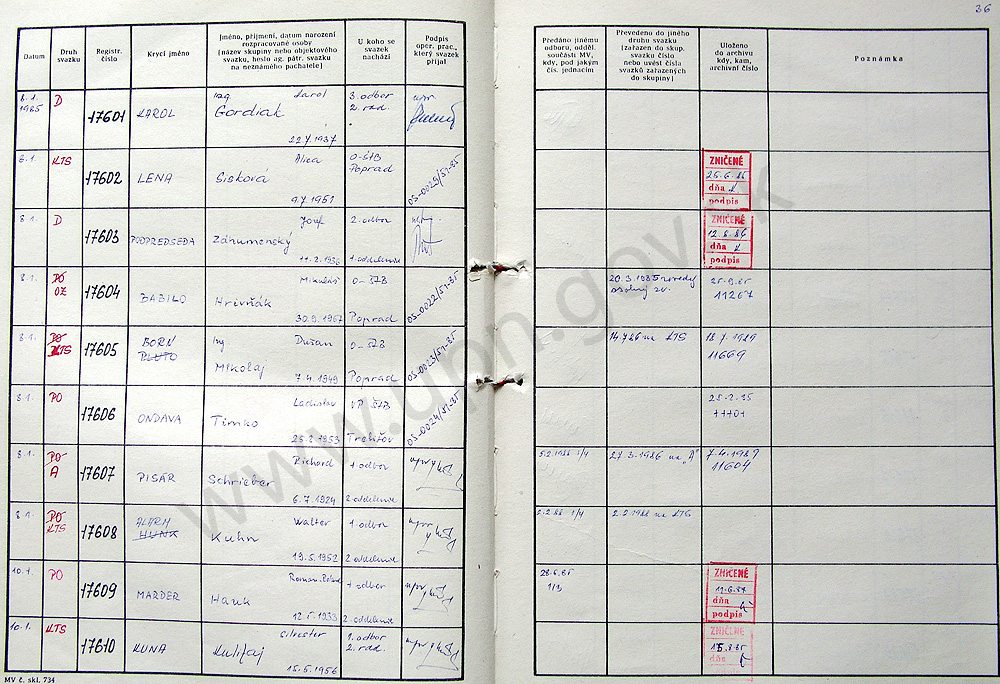 36
Datum
Druh
svazku
Registr.
číslo
Krycí jméno
Jméno, příjmení, datum narození
rozpracované osoby
(název skupiny nebo objektového
svazku, heslo ag. pátr. svazku
na neznámého pachatele)
U koho se
svazek
nachází
Podpis
oper. prac.,
který svazek
přijal
Předáno jinému
odboru, odděl.
součásti MV
kdy, pod jakým
čís. jednacím
Převedeno do jiného
druhu svazku
(zařazen do skup.
svazku číslo
nebo uvést čísla
svazků zařazených
do skupiny)
Uloženo
do archivu
kdy, kam,
archivní číslo
Poznámka
8.1.
1985
D
17601
KAROL
Ing. Karol
Gordiak
22.7.1937
3. odbor
2. rad.
6.1.
KTS
17602
LENA
Alica
Sisková
9.7.1951
O-ŠTB
Poprad
OS-0025/51-85
ZNIČENÉ
26.6.86
dňa
podpis
8.1.
D
17603
PODPREDSEDA
Jozef
Zánumenský
11.2.1936
2. odbor
1. oddelenie
ZNIČENÉ
12.6.86
dňa
podpis
8.1.
PO
OZ
17604
BABILO
Mikuláš
Hrivňák
30.9.1957
O-ŠTB
Poprad
OS-0022/51-85
11267
8.1.
PO
KTS
17605
BORN
PLUTO
Ing. Dušan
Mikolaj
7.4.1949
O-ŠTB
Poprad
OS-0023/51-85
14.7.86 na KTS
18.7.1989
11669
8.1.
PO
17606
ONDAVA
Ladislav
Timko
1953
VP ŠTB
OS-0024/51-85
8.1.
PO-
A
17607
PISÁR
Richard
Schrieber
6.7.1924
1 odbor
2 oddelenie
27.3.1986 na "A"
7.4.1989
11604
8.1.
PO
KTS
17608
ALARM
HUNK
Walter
Kuhn
19.5.1952
1 odbor
2 oddelenie
2.2.88 1/4
2.2.1988 na KTS
10.1.
PO
17609
MARDER
Hauk
12.5.1933
1 odbor
2 oddelenie
28.6.85
ZNIČENÉ
dňa
podpis
10.1.
KTS
17610
KUNA
Silvester
Kulifaj
15.5.1956
1. odbor
2. rad.
ZNIČENÉ
dňa
MV č. skl. 734
www.upn.gov.sk